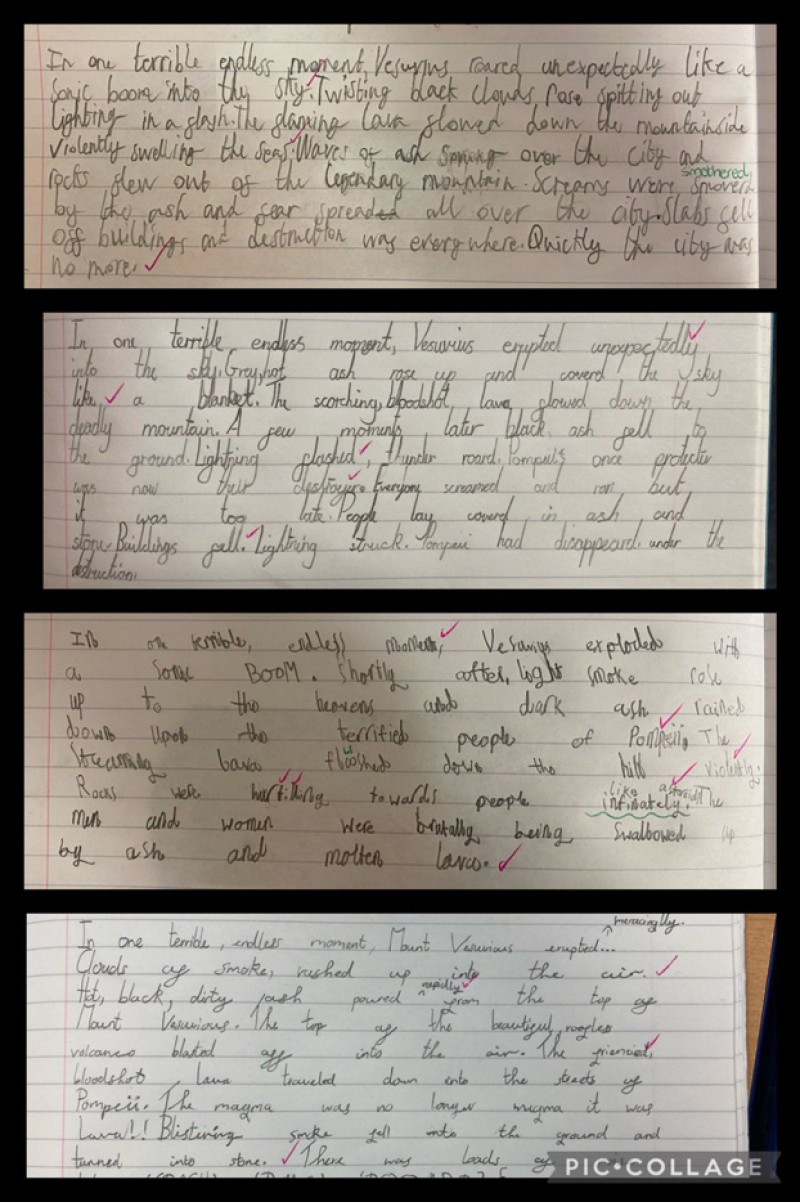 In one terrible endless moment, Vesuvius roared unexpectedly like a
sonic boom into the sky. Twisting black clouds rose spitting out
lighting in a flash. The flaming lava flowed down the mountainside
violently swelling the seas. Waves of ash sprung over the city and
rocks flew out of the legendary mountain. Screams were
smothered
by the ash and fear spreaded all over the city. Slabs fell
off buildings and destruction was everywhere. Quickly the city was
no more.
In one terrible endless moment, Vesuvius erupted unexpectedly
into the sky. Grey, hot ash rose up and coverd the sky
like a blanket. The scorching, bloodshot, lava flowed down the
deadly mountain. A few moments later black ash fell to
the ground. Lightning flashed, thunder roard. Pompeii's once protecter
was now their destroyer. Everyone screamed and ran but
it was too late. People lay coverd in ash and
stone. Buildings fell. Lightning struck. Pompeii had disappeard under the
destruction.
In one terrible, endless moment, Vesuvius exploded with
a Sonic BOOM. Shortly after, light smoke rose
up to the heavens and dark ash rained
down upon the terrified people of Pompeii. The
Steaming lava down the hill violently.
like asteroids
Rocks were hurtilling towards people infinately. The
men and women were brutally being swallowed up
by ash and molten lava.
menacingly.
In one terrible, endless moment, Mount Vesuvious erupted...
Clouds of smoke, rushed up into the air.
rapidly
Hot, black, dirty ash poured from the top of
Mount Vesuvious. The top of the beautiful,
volcano blasted off into the air. The
bloodshot lava traveled down into the streets of
Pompeii. The magma was no longer magma it was
Lava!! Blistering smoke fell onto the ground and
turned into stone. There was loads of
PIC•COLLAGE